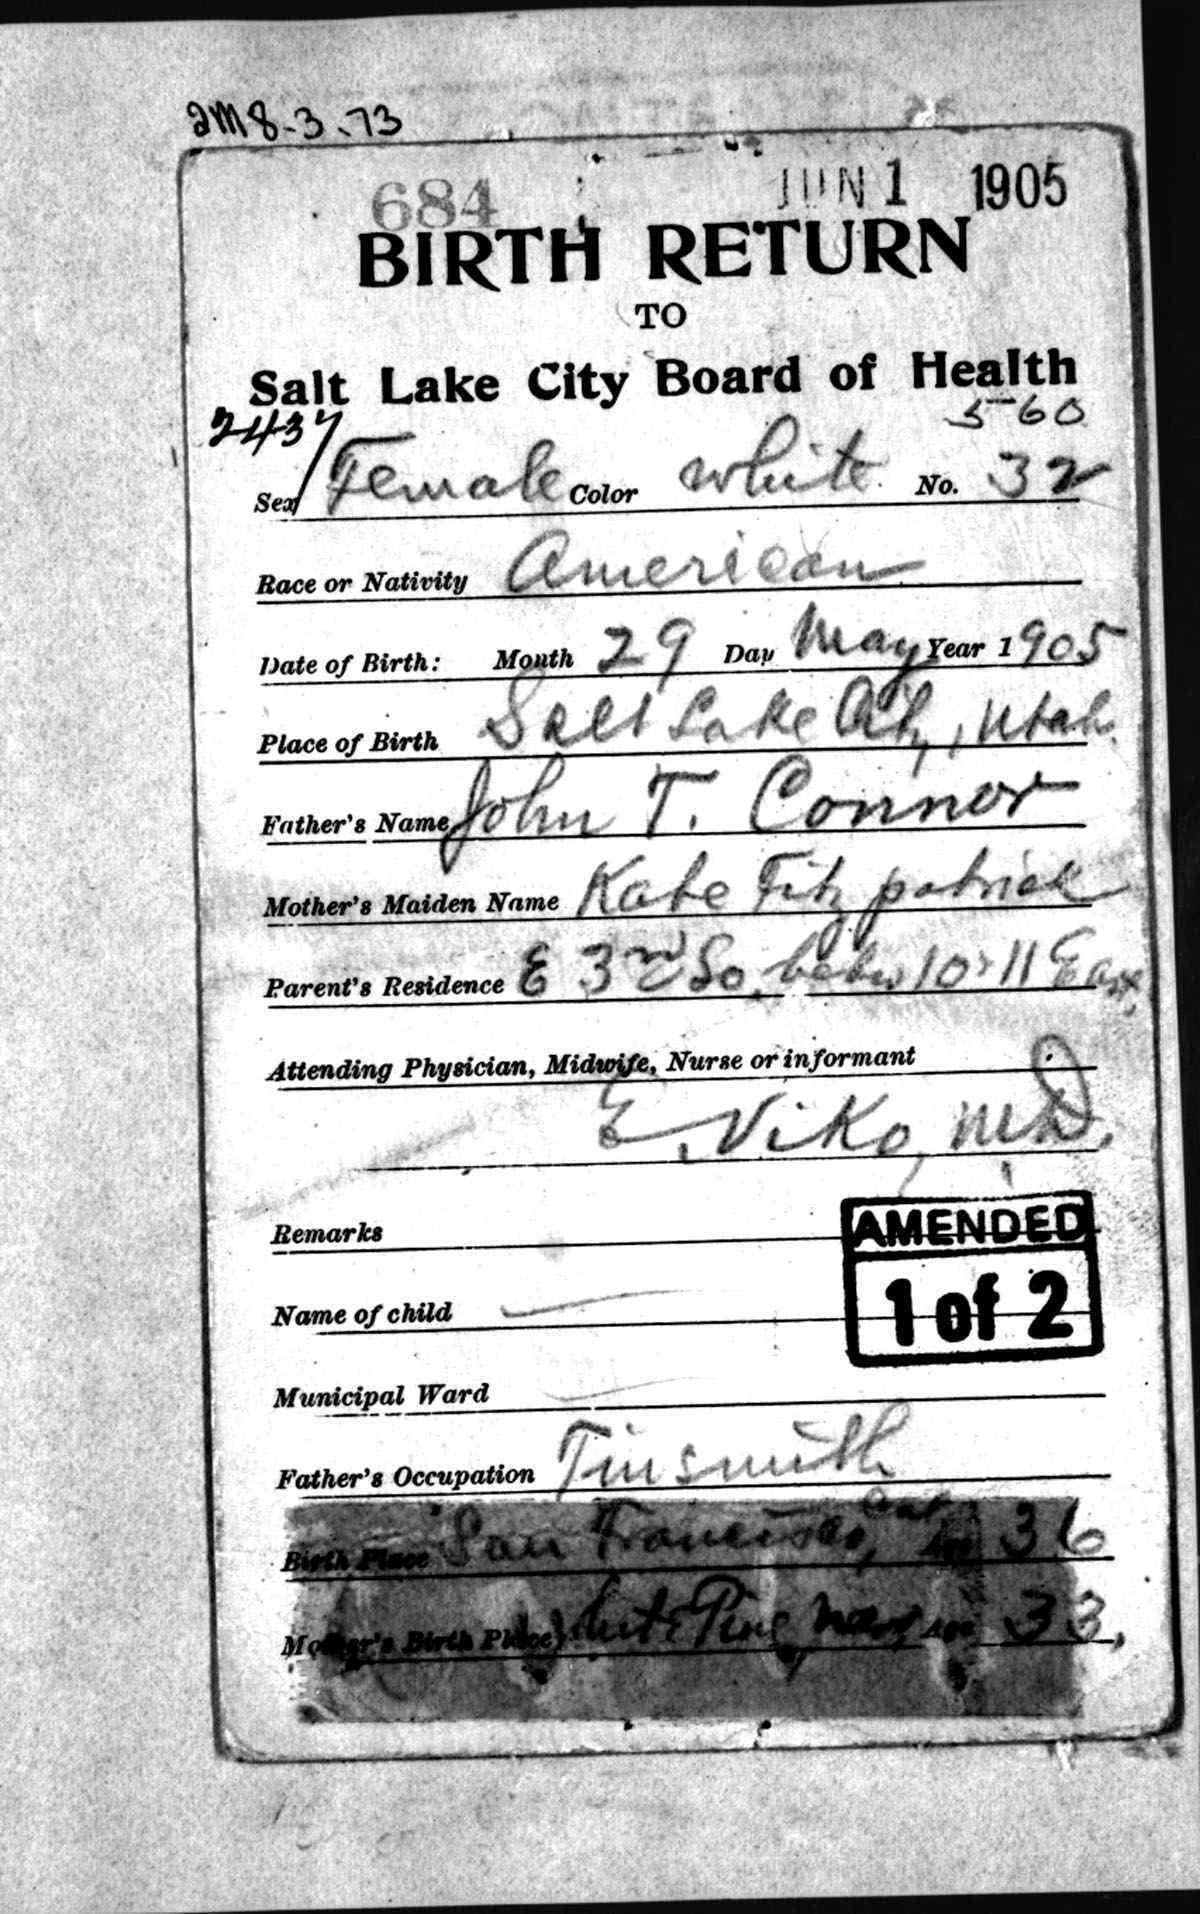 am 8-3-73
684 JUN 1 1905
BIRTH RETURN
TO
Salt Lake City Board of Health
2437 560
Sex Female Color white No. 32
Race or Nativity American
Date of Birth: Month 29 Day May Year 1905
Place of Birth Salt Lake City, Utah.
Father's Name John T. Connor
Mother's Maiden Name Kate Fitzpatrick
Parent's Residence E 3rd So. betw 10 & 11 East
Attending Physician, Midwife, Nurse or informant
E. Viko, M.D.
Remarks
AMENDED
Name of child
1 of 2
Municipal Ward
Father's Occupation Tinsmith
Birth Place San Francisco, Cal. Age 36
Mother's Birth Place White Pine, Nev, Age 33.